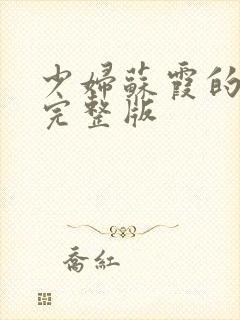 少婦蘇霞的
完整版
喬紅